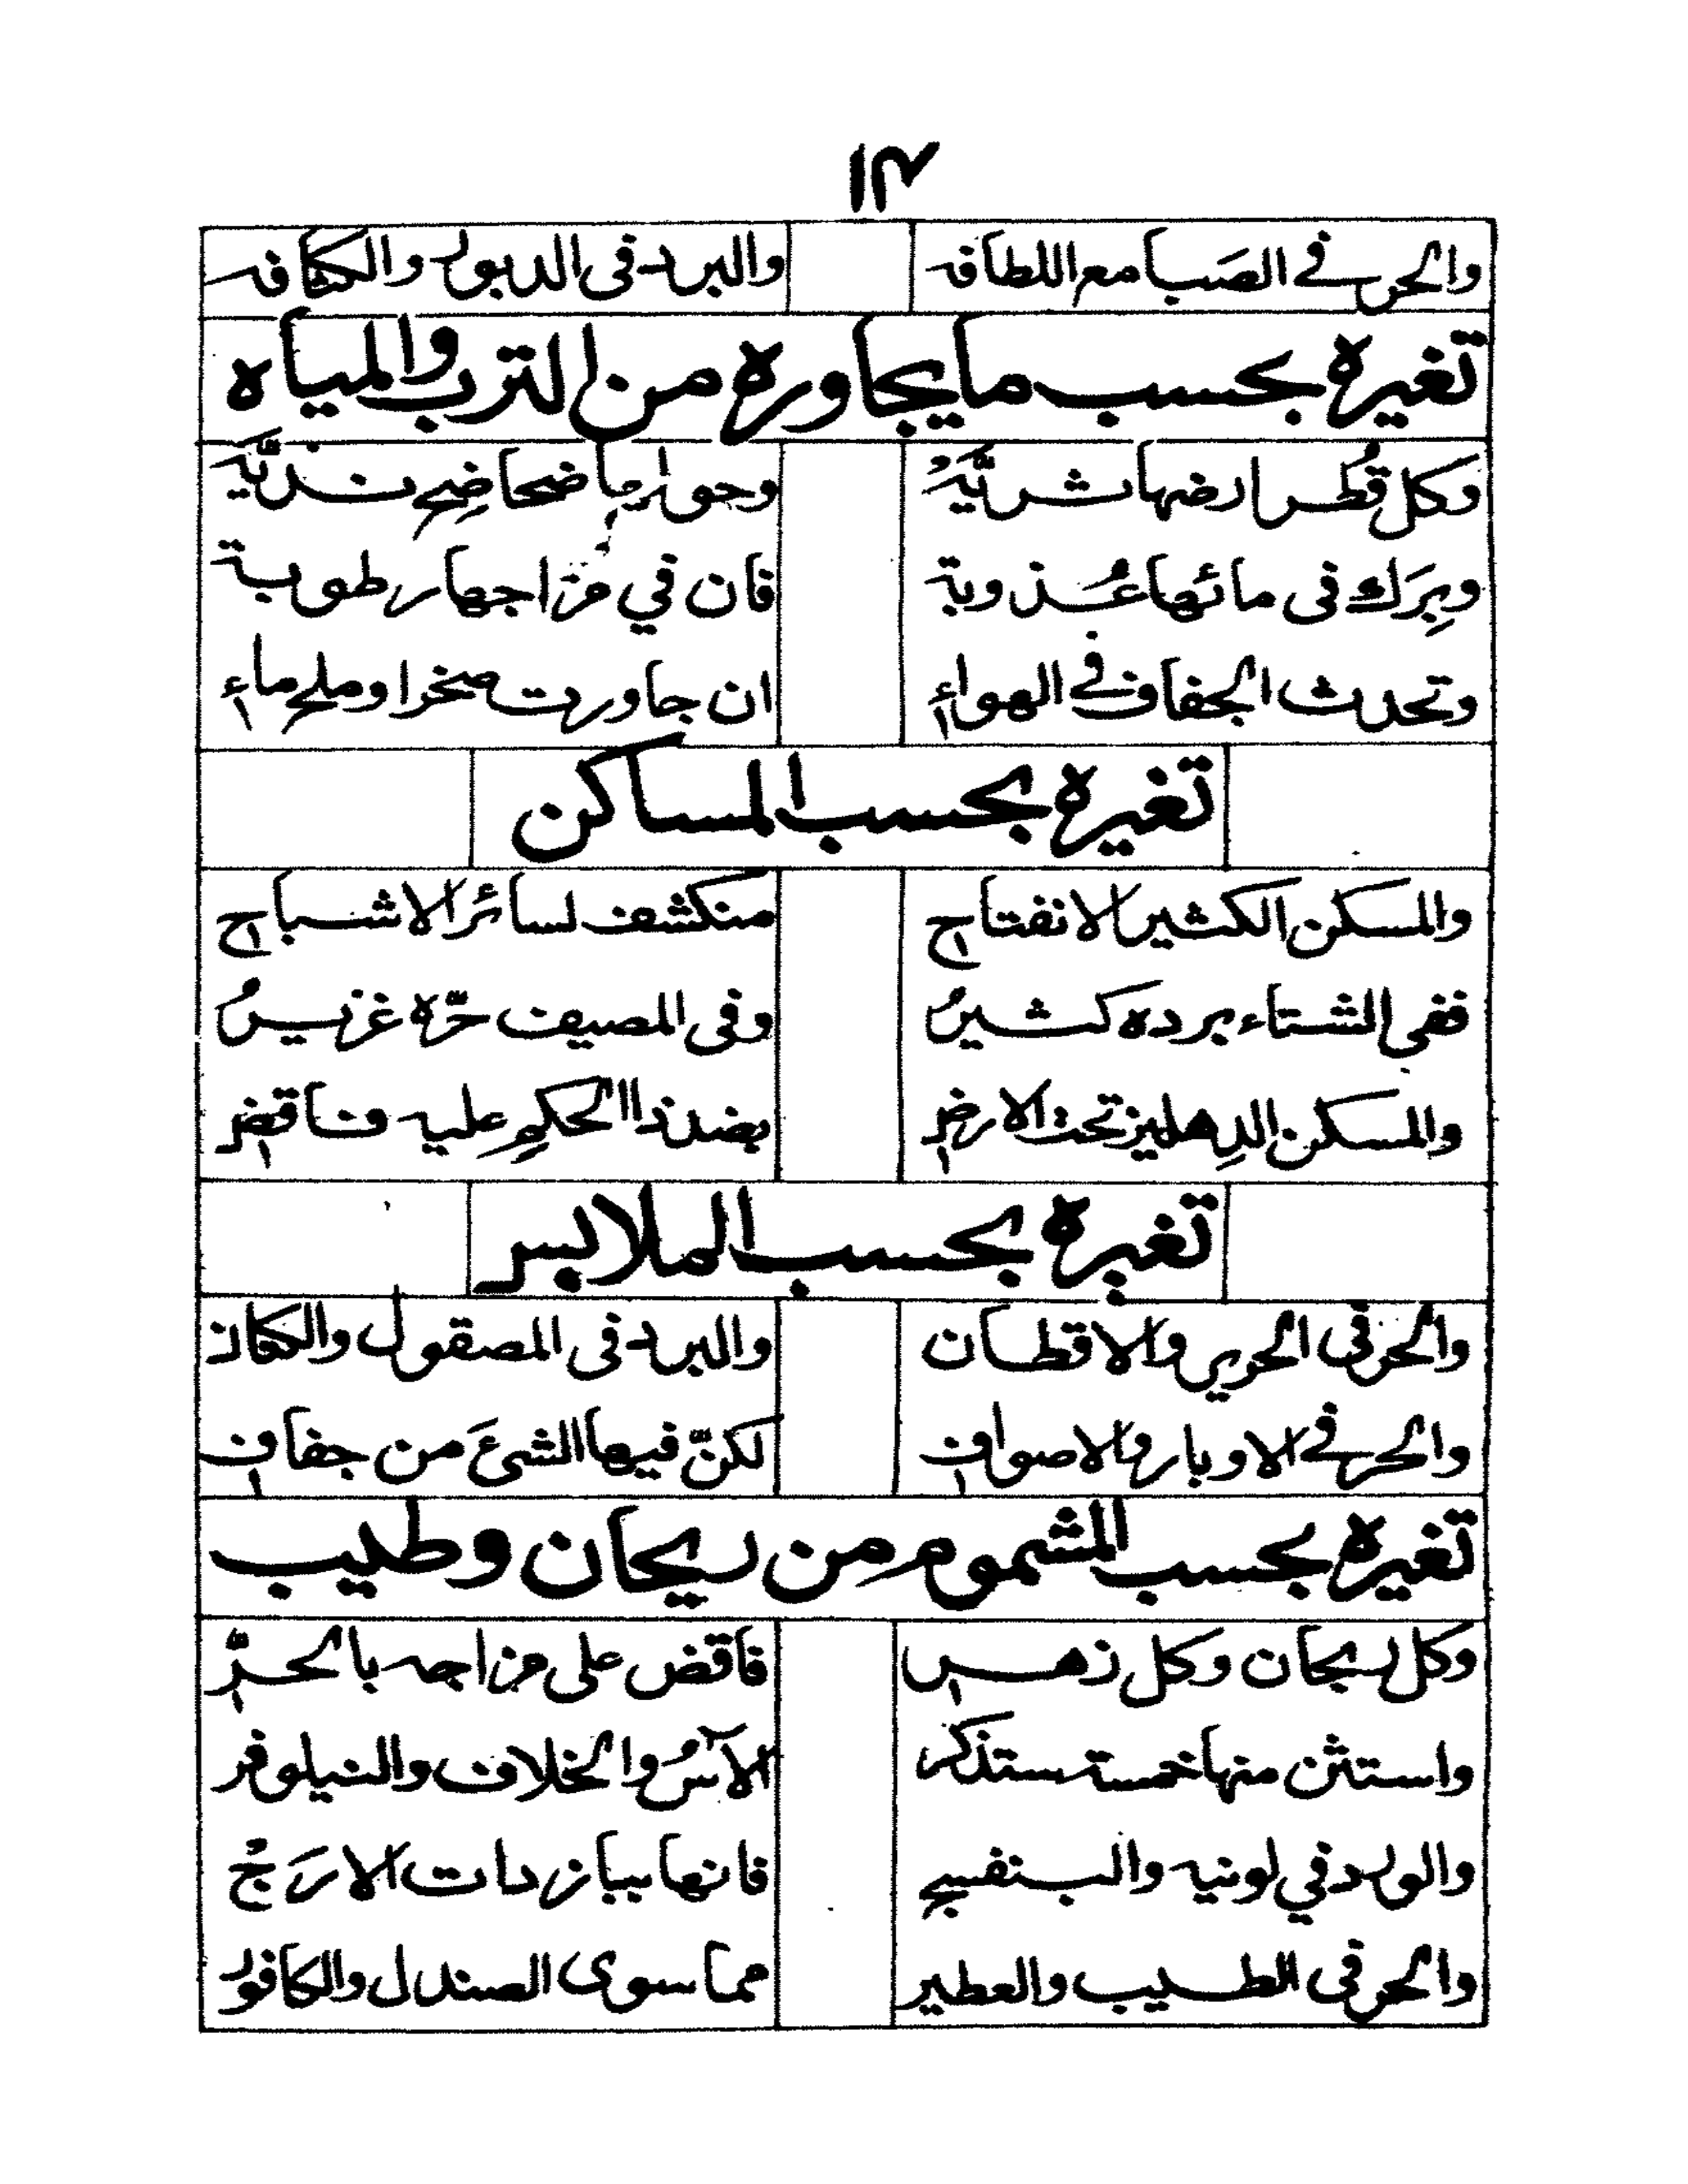 ١٣
والحر في الصَبا مع اللطافه والبرد فى الدبور والكثافه
تغيره بحسب ما يجاوره من الترب والمياه
وكل قُطر ارضها ثريَّةُ وحولها ضحاضِح نديَّه
وبِرَك فى مائها عُذوبة فان في مزاجها رطوبة
وتحدث الجفاف في الهواءِ ان جاورت صخرا وملح ماءِ
تغيره بحسب المساكن
والمسكن الكثير الانفتاحِ منكشف لسائر الاشباحِ
ففي الشتاء برده كثيرُ وفى المصيف حرّه غزيرُ
والمسكن الدِهليز تحت الارضِ بضد ذا الحكم عليه فاقضِ
تغيره بحسب الملابس
والحر فى الحرير والاقطان والبرد فى المصقول والكتان
والحر في الاوبار والاصوافِ لكنّ فيها الشئَ من جفافِ
تغيره بحسب المشموم من ريحان وطيب
وكل ريحان وكل زهرِ فاقض على مزاجه بالحرِّ
واستثن منها خمسة ستذكر الآسُ والخلاف والنيلوفر
والورد في لونيه والبنفسج فانها بباردات الارَجُ
والحر فى الطيب والعطير مما سوى الصندل والكافور